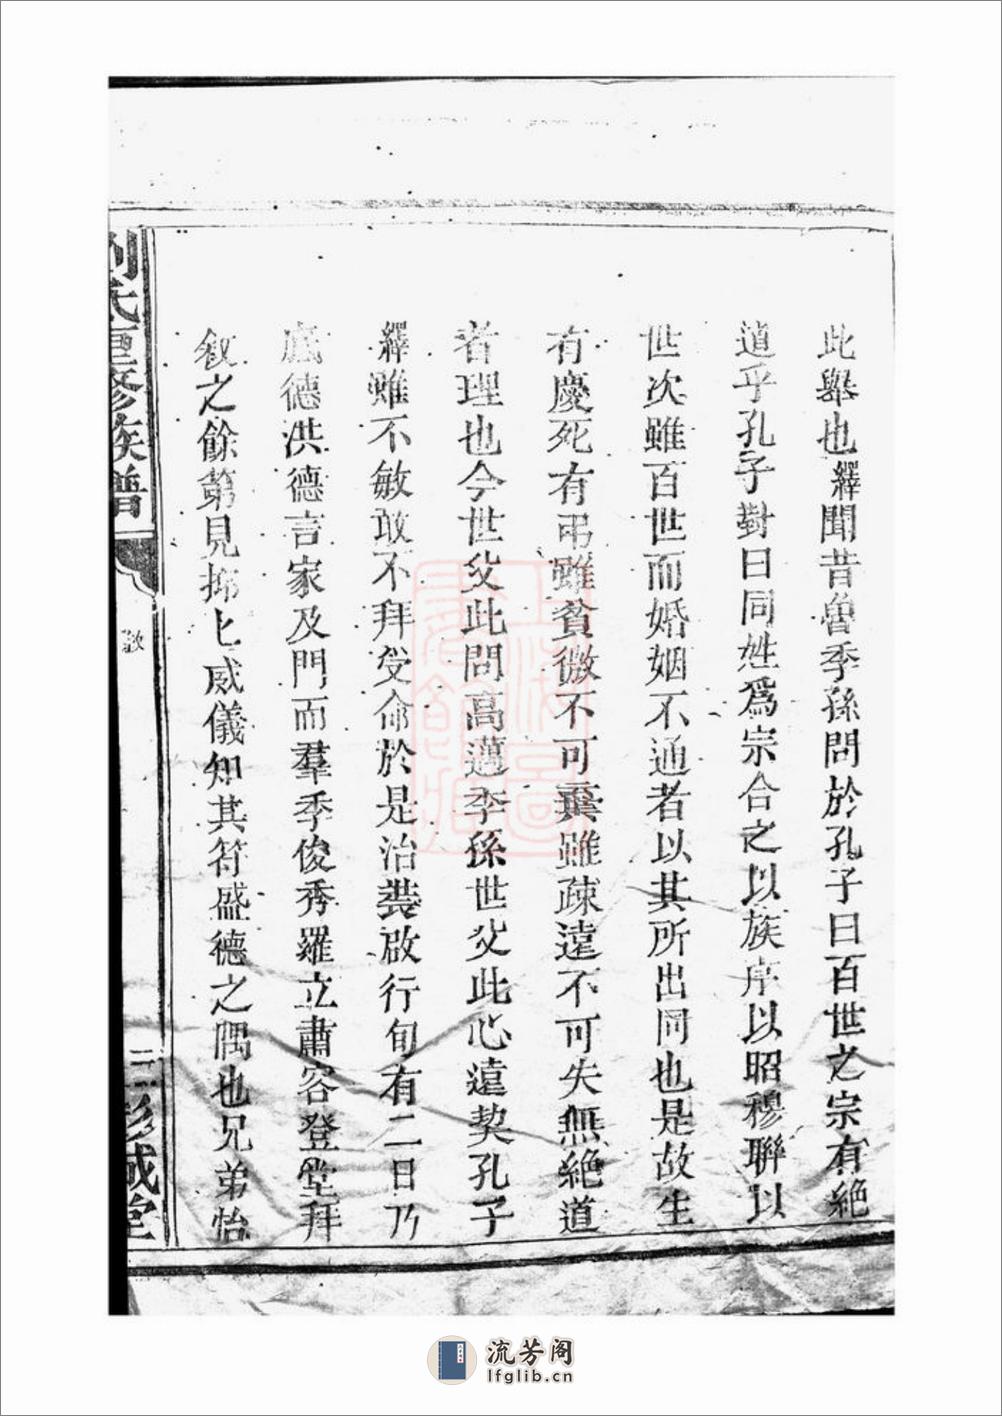 此舉也繹聞昔魯季孫問於孔子曰百世之宗有絶
道乎孔子對曰同姓爲宗合之以族序以昭穆聯以
世次雖百世而婚姻不通者以其所出同也是故生
有慶死有弔雖貧微不可棄雖疎遠不可失無絶道
者理也今世父此問高邁季孫世父此心遠契孔子
繹雖不敏敢不拜受命於是治裝啟行旬有二日乃
底德洪德言家及門而羣季俊秀羅立肅容登堂拜
叙之餘第見抑上威儀知其符盛德之隅也兄弟怡
劉氏重修族譜
敘
三 彭城堂
上海圖書館藏
流芳阁
lfglib.cn